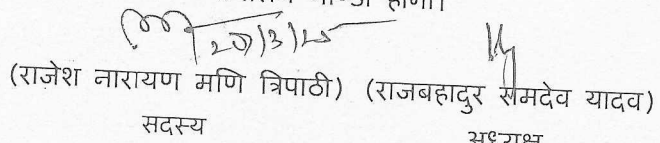 20/3/25
(राजेश नारायण मणि त्रिपाठी) (राजबहादुर रामदेव यादव)
सदस्य अध्यक्ष